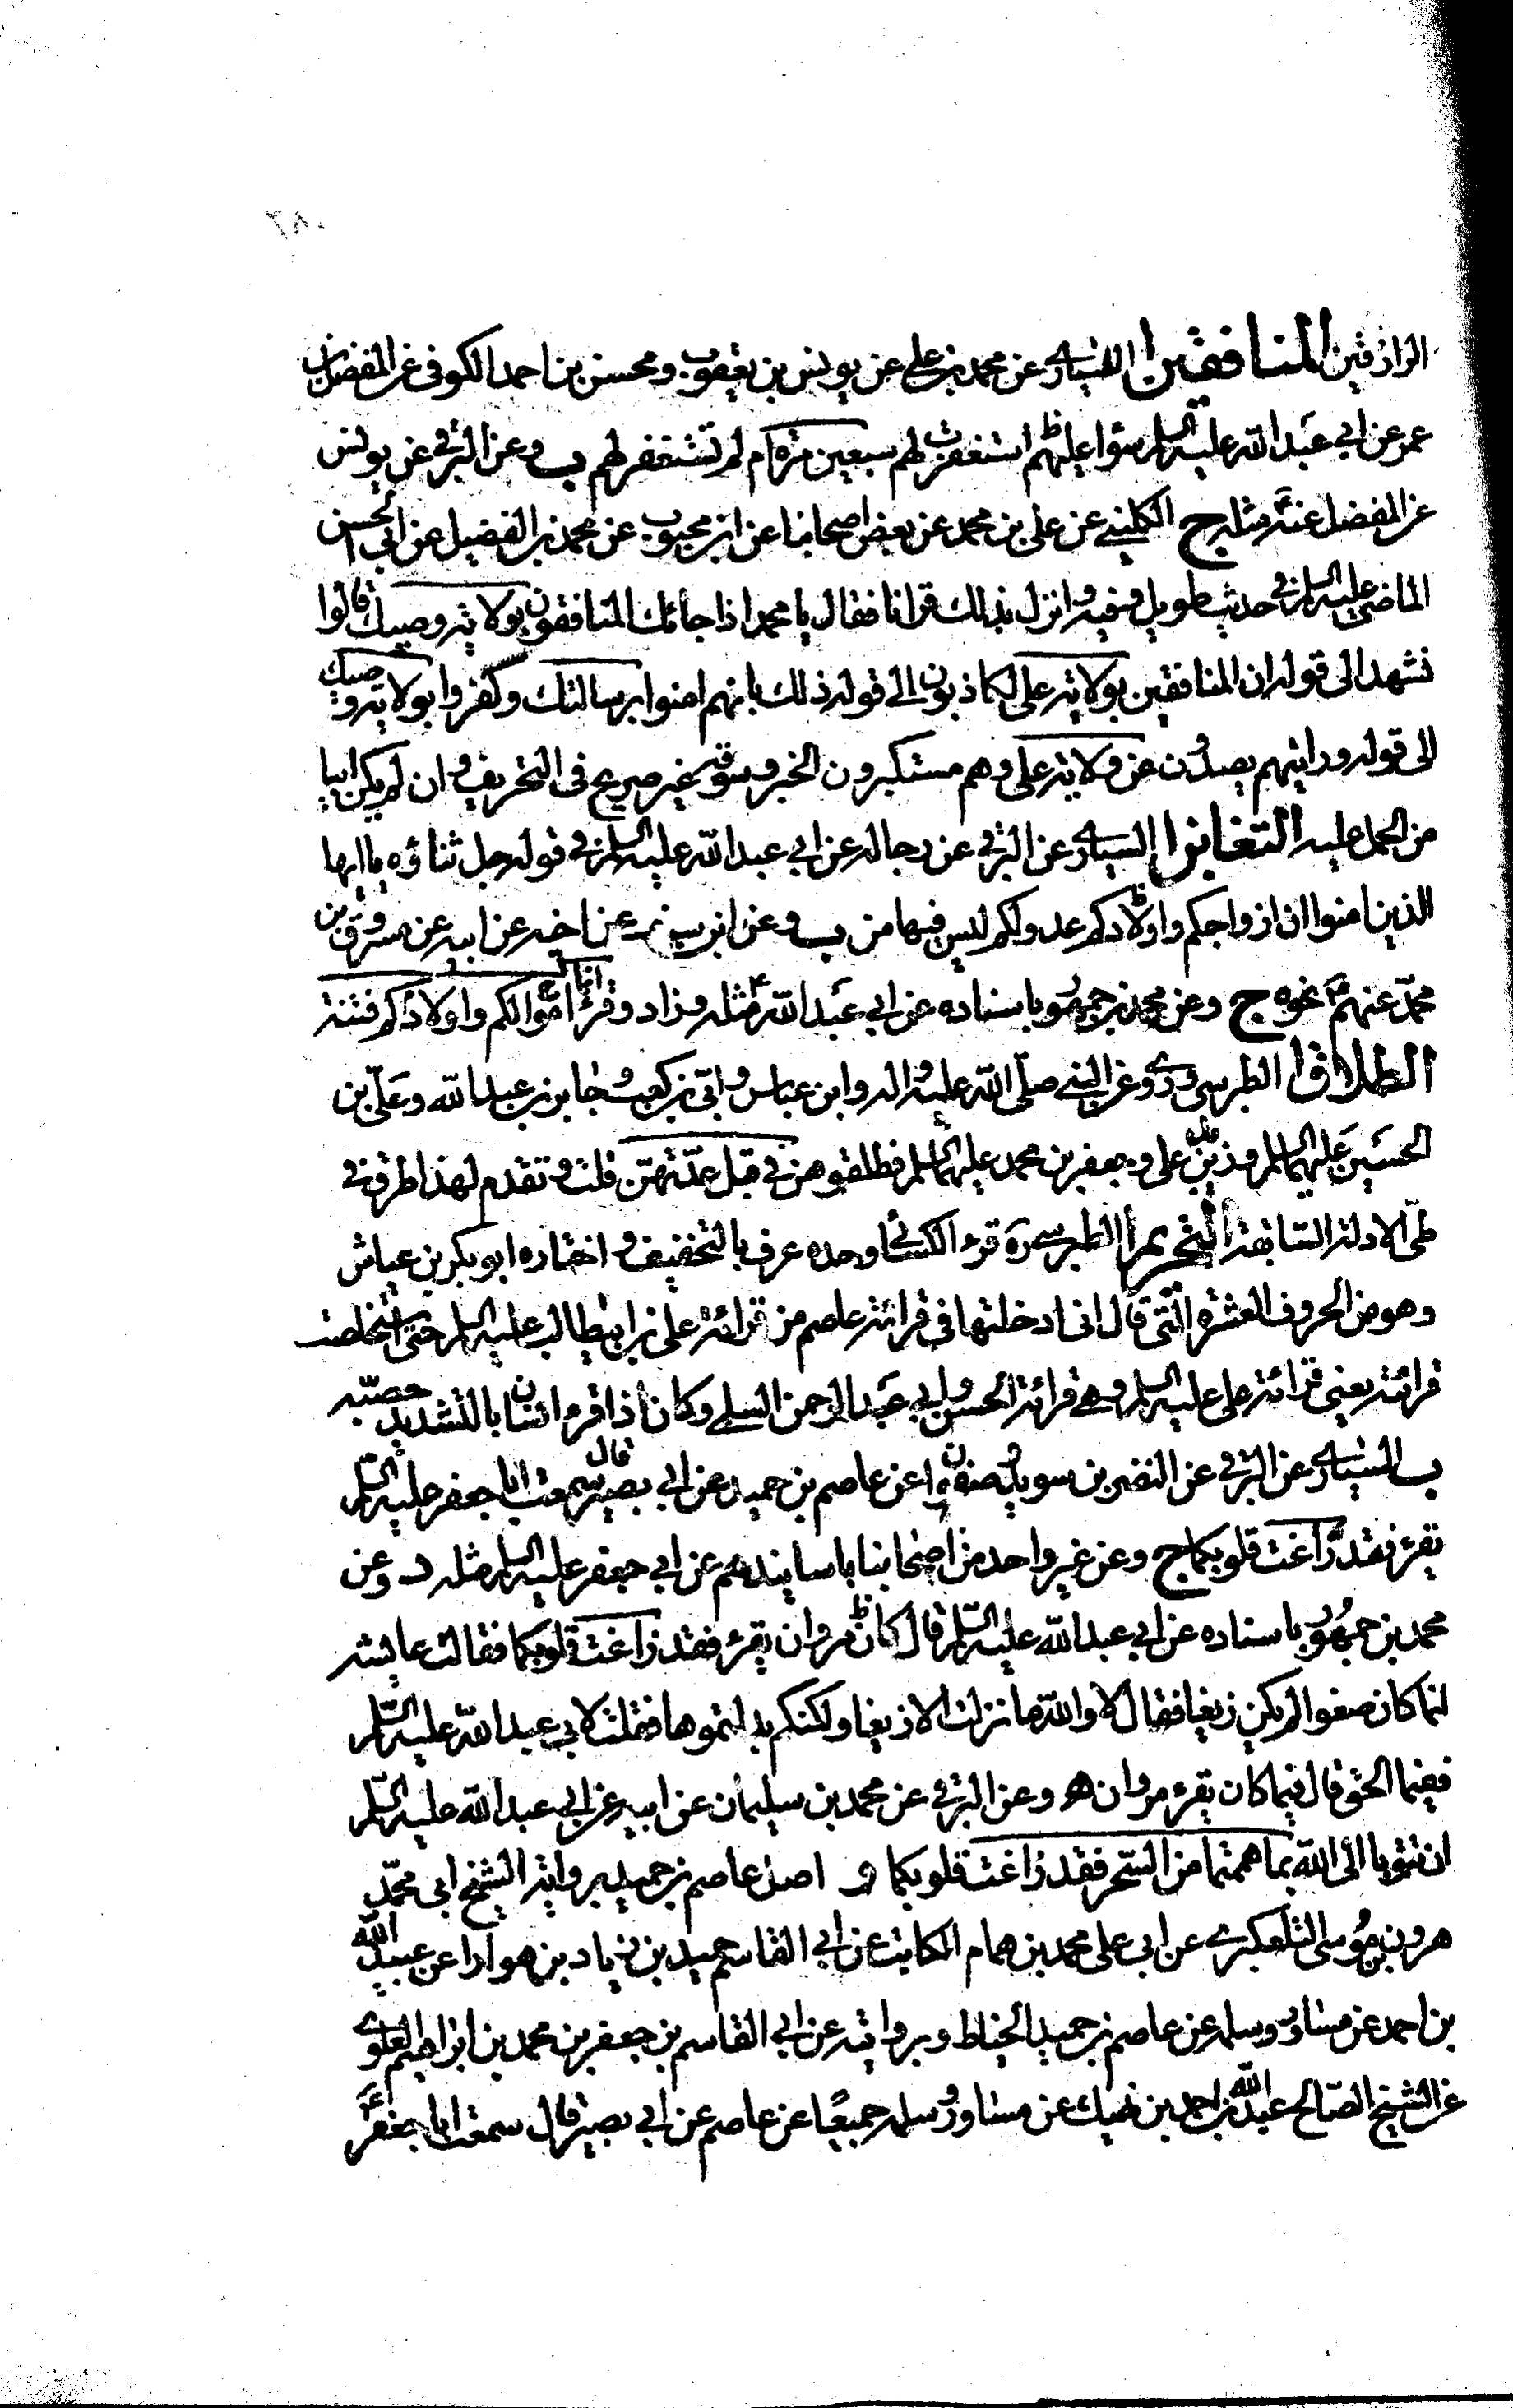 الرازقين المنافقين ا السياري عن محمد بن علي عن يونس بن يعقوب ومحسن بن احمد الكوفي عن المفضل بن
عمر عن ابي عبد الله عليه السلم سواء عليهم استغفرت لهم سبعين مرة ام لم تستغفر لهم ب وعن البرقي عن يونس
عن المفضل عنه مثله ج الكليني عن علي بن محمد عن بعض اصحابنا عن ابن محبوب عن محمد بن الفضيل عن ابي الحسن
الماضي عليه السلم في حديث طويل وفيه وانزل بذلك قرانا فقال يا محمد اذا جائك المنافقون بولاية وصيك قالوا
نشهد الى قوله ان المنافقين بولاية علي لكاذبون الى قوله ذلك بانهم امنوا برسالتك وكفروا بولاية وصيك
الى قوله ورايتهم يصدون عن ولاية علي وهم مستكبرون الخبر وسوقه غير صريح في التحريف وان لم يكن ابيا
من الحمل عليه التغابن ا السياري عن البرقي عن رجاله عن ابي عبد الله عليه السلم في قوله جل ثناؤه يا ايها
الذين امنوا ان ازواجكم واولادكم عدو لكم ليس فيها من ب وعن ابن سيف عن اخيه عن ابيه عن مسروق بن
محمد عنهم نحوه ج وعن محمد بن جمهور باسناده عن ابي عبد الله ع مثله وزاد وقرء انما اموالكم واولادكم فتنة
الطلاق ا الطبرسي وروى عن النبي صلى الله عليه واله وابن عباس وابي بن كعب وجابر بن عبد الله وعلي بن
الحسين عليهما السلم وزيد بن علي وجعفر بن محمد عليهما السلم فطلقوهن في قبل عدتهن قلت وتقدم لهذا طرق في
طي الادلة السابقة التحريم ا الطبرسي ره قرء الكسائي وحده عرف بالتخفيف واختاره ابو بكر بن عياش
وهو من الحروف العشرة التي قال اني ادخلتها في قرائة عاصم من قرائة علي بن ابيطالب عليه السلم حتى استخلصت
قرائته يعني قرائة علي عليه السلم وهي قرائة الحسن وابي عبد الرحمن السلمي وكان اذا قرء انسان بالتشديد حصبه
ب السياري عن البرقي عن النضر بن سويد وصفوان عن عاصم بن حميد عن ابي بصير قال سمعت ابا جعفر عليه السلم
يقرء فقد زاغت قلوبكما ج وعن غير واحد من اصحابنا باسانيدهم عن ابي جعفر عليه السلم مثله د وعن
محمد بن جمهور باسناده عن ابي عبد الله عليه السلم قال كان مروان يقرء فقد زاغت قلوبكما فقالت عايشه
انما كان صغوا لم يكن زيغا فقال لا والله ما نزلت الا زيغا ولكنكم بدلتموها فقلت لابي عبد الله عليه السلم
ففيما الحق قال فيما كان يقرء مروان ه وعن البرقي عن محمد بن سليمان عن ابيه عن ابي عبد الله عليه السلم
ان تتوبا الى الله بما هممتما من السحر فقد زاغت قلوبكما و اصل عاصم بن حميد برواية الشيخ ابي محمد
هرون بن موسى التلعكبري عن ابي علي محمد بن همام الكاتب عن ابي القاسم حميد بن زياد بن هوارا عن عبيد الله
بن احمد عن مساور وسلمه عن عاصم بن حميد الحناط وبروايته عن ابي القاسم بن جعفر بن محمد بن ابراهيم العلوي
عن الشيخ الصالح عبد الله بن احمد بن نهيك عن مساور وسلمه جميعًا عن عاصم عن ابي بصير قال سمعت ابا جعفر ع